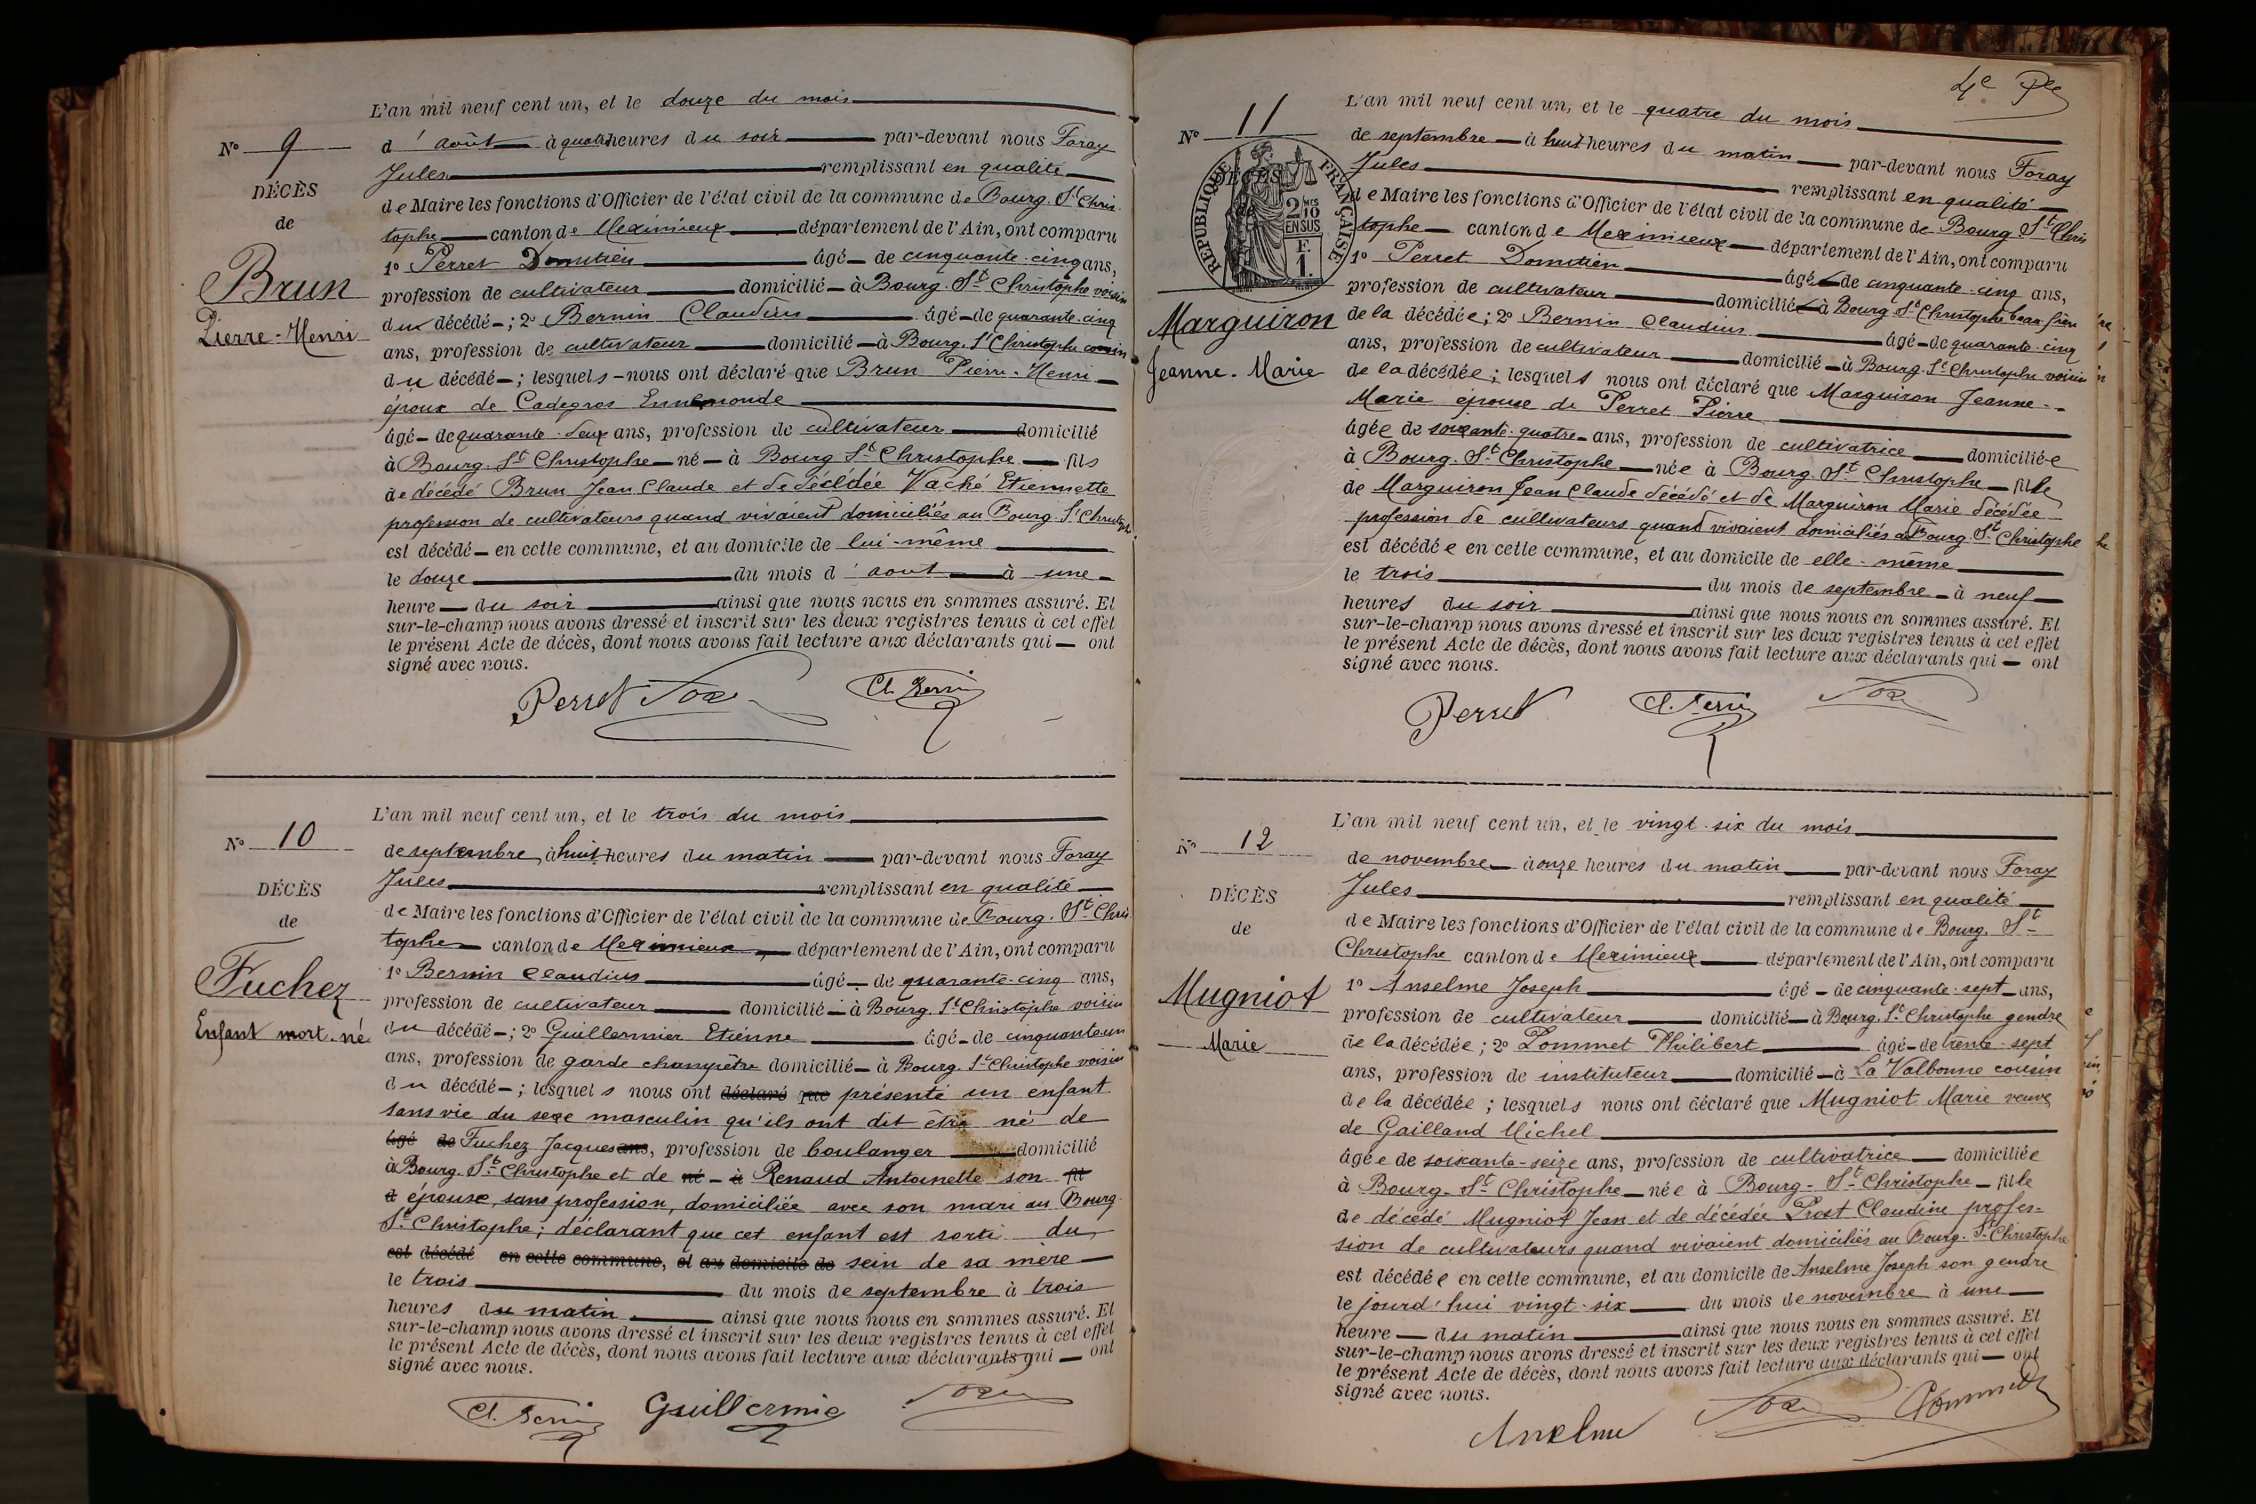 L'an mil neuf cent un, et le douze du mois
N° 9
d'août à quatre heures du soir par-devant nous Foray
Jules remplissant en qualité
DÉCÈS
de Maire les fonctions d'Officier de l'état civil de la commune de Bourg. St Chris
de
tophe canton de Meximieux département de l'Ain, ont comparu
1° Perret Domitien âgé de cinquante-cinq ans,
Brun
profession de cultivateur domicilié à Bourg. St Christophe voisin
Pierre-Henri
du décédé; 2° Bernin Claudius âgé de quarante-cinq
ans, profession de cultivateur domicilié à Bourg. St Christophe cousin
du décédé; lesquels nous ont déclaré que Brun Pierre-Henri
époux de Cadegros Ennemonde
âgé de quarante-deux ans, profession de cultivateur domicilié
à Bourg. St Christophe né à Bourg St Christophe fils
de décédé Brun Jean Claude et de décédée Vaché Etiennette
profession de cultivateurs quand vivaient domiciliés au Bourg. St Christophe
est décédé en cette commune, et au domicile de lui-même
le douze du mois d'aout à une
heure du soir ainsi que nous nous en sommes assuré. Et
sur-le-champ nous avons dressé et inscrit sur les deux registres tenus à cet effet
le présent Acte de décès, dont nous avons fait lecture aux déclarants qui ont
signé avec nous.
Perret Cl. Bernin
L'an mil neuf cent un, et le trois du mois
N° 10
de septembre à huit heures du matin par-devant nous Foray
Jules remplissant en qualité
DÉCÈS
de Maire les fonctions d'Officier de l'état civil de la commune de Bourg. St Chris
de
tophe canton de Meximieux département de l'Ain, ont comparu
1° Bernin Claudius âgé de quarante-cinq ans,
Fuchez
profession de cultivateur domicilié à Bourg. St Christophe voisin
Enfant mort-né
du décédé; 2° Guillermier Etienne âgé de cinquante un
ans, profession de garde champêtre domicilié à Bourg. St Christophe voisin
du décédé; lesquels nous ont déclaré que présenté un enfant
sans vie du sexe masculin qu'ils ont dit être né de
âgé de Fuchez Jacques ans, profession de boulanger domicilié
à Bourg. St Christophe et de né à Renaud Antoinette son fil
d épouse, sans profession, domiciliée avec son mari au Bourg
St Christophe; déclarant que cet enfant est sorti du
est décédé en cette commune, et au domicile de sein de sa mère
le trois du mois de septembre à trois
heures du matin ainsi que nous nous en sommes assuré. Et
sur-le-champ nous avons dressé et inscrit sur les deux registres tenus à cet effet
le présent Acte de décès, dont nous avons fait lecture aux déclarants qui ont
signé avec nous.
Cl. Bernin Guillermie
4e Pce
L'an mil neuf cent un, et le quatre du mois
N° 11
de septembre à huit heures du matin par-devant nous Foray
Jules remplissant en qualité
DÉCÈS
RÉPUBLIQUE FRANÇAISE
2 MES 10 EN SUS
F. 1.
de Maire les fonctions d'Officier de l'état civil de la commune de Bourg St Chris
tophe canton de Meximieux département de l'Ain, ont comparu
1° Perret Domitien âgé de cinquante-cinq ans,
profession de cultivateur domicilié à Bourg St Christophe beau frère
Marguiron
de la décédée; 2° Bernin Claudius âgé de quarante-cinq
ans, profession de cultivateur domicilié à Bourg. St Christophe voisin
Jeanne-Marie
de la décédée; lesquels nous ont déclaré que Marguiron Jeanne-
Marie epouse de Perret Pierre
âgée de soixante-quatre ans, profession de cultivatrice domiciliée
à Bourg. St Christophe née à Bourg. St Christophe fille
de Marguiron Jean Claude décédé et de Marguiron Marie décédée
profession de cultivateurs quand vivaient domiciliés au Bourg. St Christophe
est décédée en cette commune, et au domicile de elle-même
le trois du mois de septembre à neuf
heures du soir ainsi que nous nous en sommes assuré. Et
sur-le-champ nous avons dressé et inscrit sur les deux registres tenus à cet effet
le présent Acte de décès, dont nous avons fait lecture aux déclarants qui ont
signé avec nous.
Perret Cl. Bernin
L'an mil neuf cent un, et le vingt-six du mois
N° 12
de novembre à onze heures du matin par-devant nous Foray
Jules remplissant en qualité
DÉCÈS
de Maire les fonctions d'Officier de l'état civil de la commune de Bourg. St
de
Christophe canton de Meximieux département de l'Ain, ont comparu
1° Anselme Joseph âgé de cinquante-sept ans,
Mugniot
profession de cultivateur domicilié à Bourg. St Christophe gendre
Marie
de la décédée; 2° Pommet Philibert âgé de trente-sept
ans, profession de instituteur domicilié à La Valbonne cousin
de la décédée; lesquels nous ont déclaré que Mugniot Marie veuve
de Gailland Michel
âgée de soixante-seize ans, profession de cultivatrice domiciliée
à Bourg-St Christophe née à Bourg-St Christophe fille
de décédé Mugniot Jean et de décédée Prost Claudine profes=
sion de cultivateurs quand vivaient domiciliés au Bourg-St Christophe
est décédée en cette commune, et au domicile de Anselme Joseph son gendre
le jourd'hui vingt-six du mois de novembre à une
heure du matin ainsi que nous nous en sommes assuré. Et
sur-le-champ nous avons dressé et inscrit sur les deux registres tenus à cet effet
le présent Acte de décès, dont nous avons fait lecture aux déclarants qui ont
signé avec nous.
Anselme Pommet